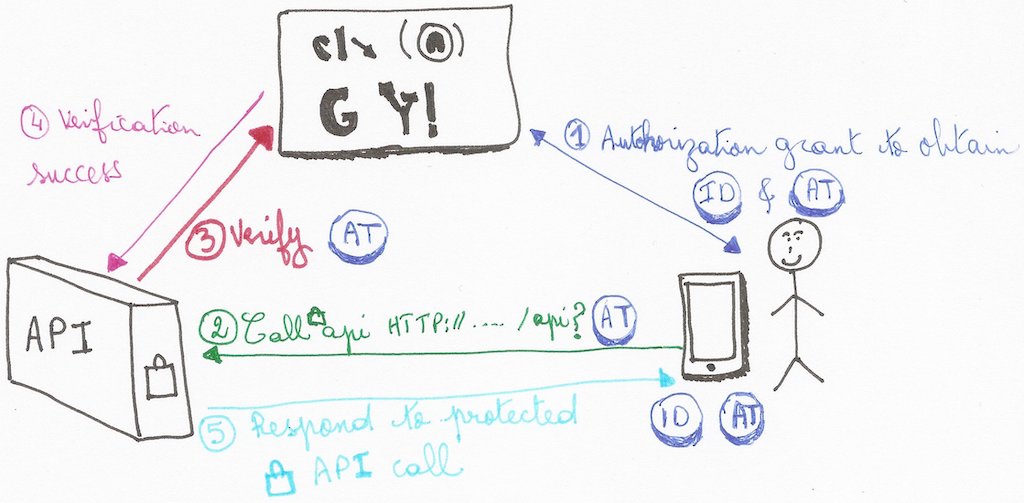 (@)
G Y!
① Authorization grant to obtain
ID & AT
④ Verification
success
③ Verify AT
API
② Call api HTTP://...../api? AT
⑤ Respond to protected
API call
ID AT